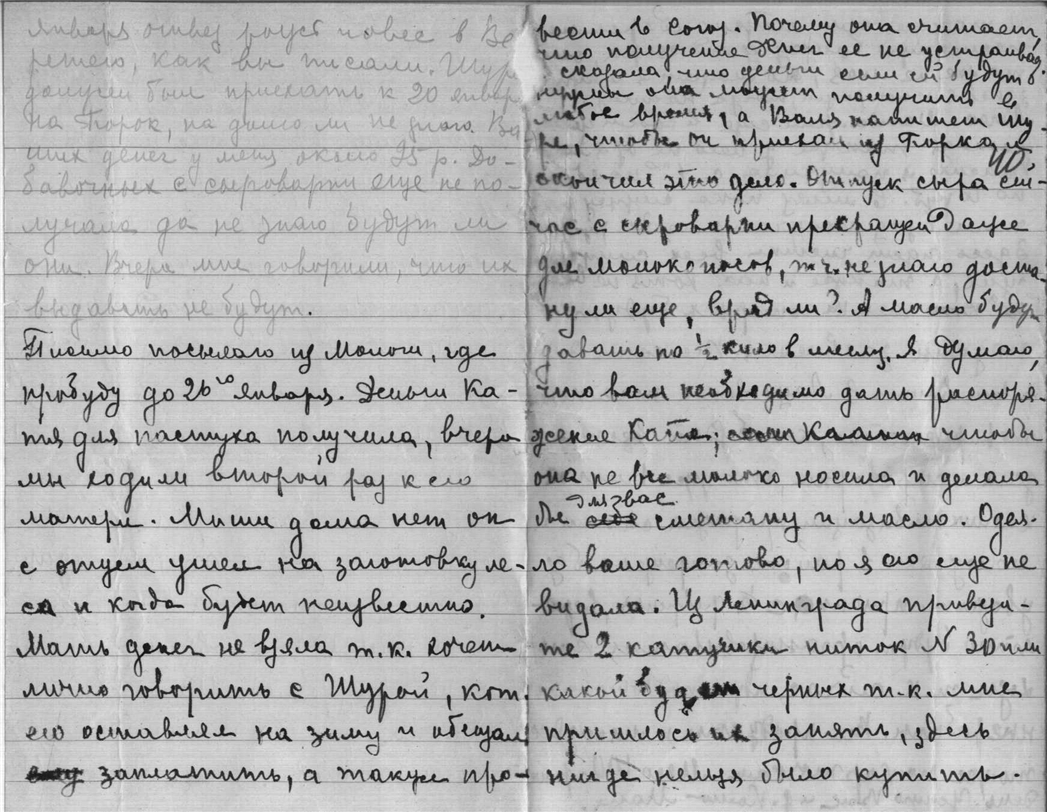 января отвез роуст човес в Ве
ретею, как вы писали. Шур
должен был приехать к 20 январ
на Торок, на долго ли не знаю. Ва
ших денег у меня около 25 р. До-
бавочных с сыроварни еще не по-
лучала да не знаю будут ли
они. Вчера мне говорили, что их
выдавать не будут.
Письмо посылаю из Мологи, где
пробуду до 26го января. Деньги Ка-
тя для пастуха получила, вчера
мы ходили второй раз к его
матери. Миши дома нет он
с отцем ушел на заготовку ле-
са и когда будет неизвестно.
Мать денег не взяла т.к. хочет
лично говорить с Шурой, кот.
его оставлял на зиму и обещал
заплатить, а также про-
вести в Союз. Почему она считает,
что получение денег ее не устраива
сказала, что деньги если ей будут
нужны она может получить в
любое время, а Валя напишет Шу-
ре, чтобы он приехал из Торка и
окончил это дело. Отпуск сыра сей-
час с сыроварни прекращен Даже
для молоконосов, т.ч. не знаю доста-
ну ли еще, вряд ли? А масло будут
давать по 1/2 кило в месяц. Я думаю,
что вам необходимо дать распоря-
жение Кате, чтобы
она не все молоко носила и делала
бы для вас сметану и масло. Одея-
ло ваше готово, но я его еще не
видала. Из Ленинграда привези-
те 2 катушки ниток N 30 или
какой будет черных т.к. мне
пришлось их занять, здесь
нигде нельзя было купить.